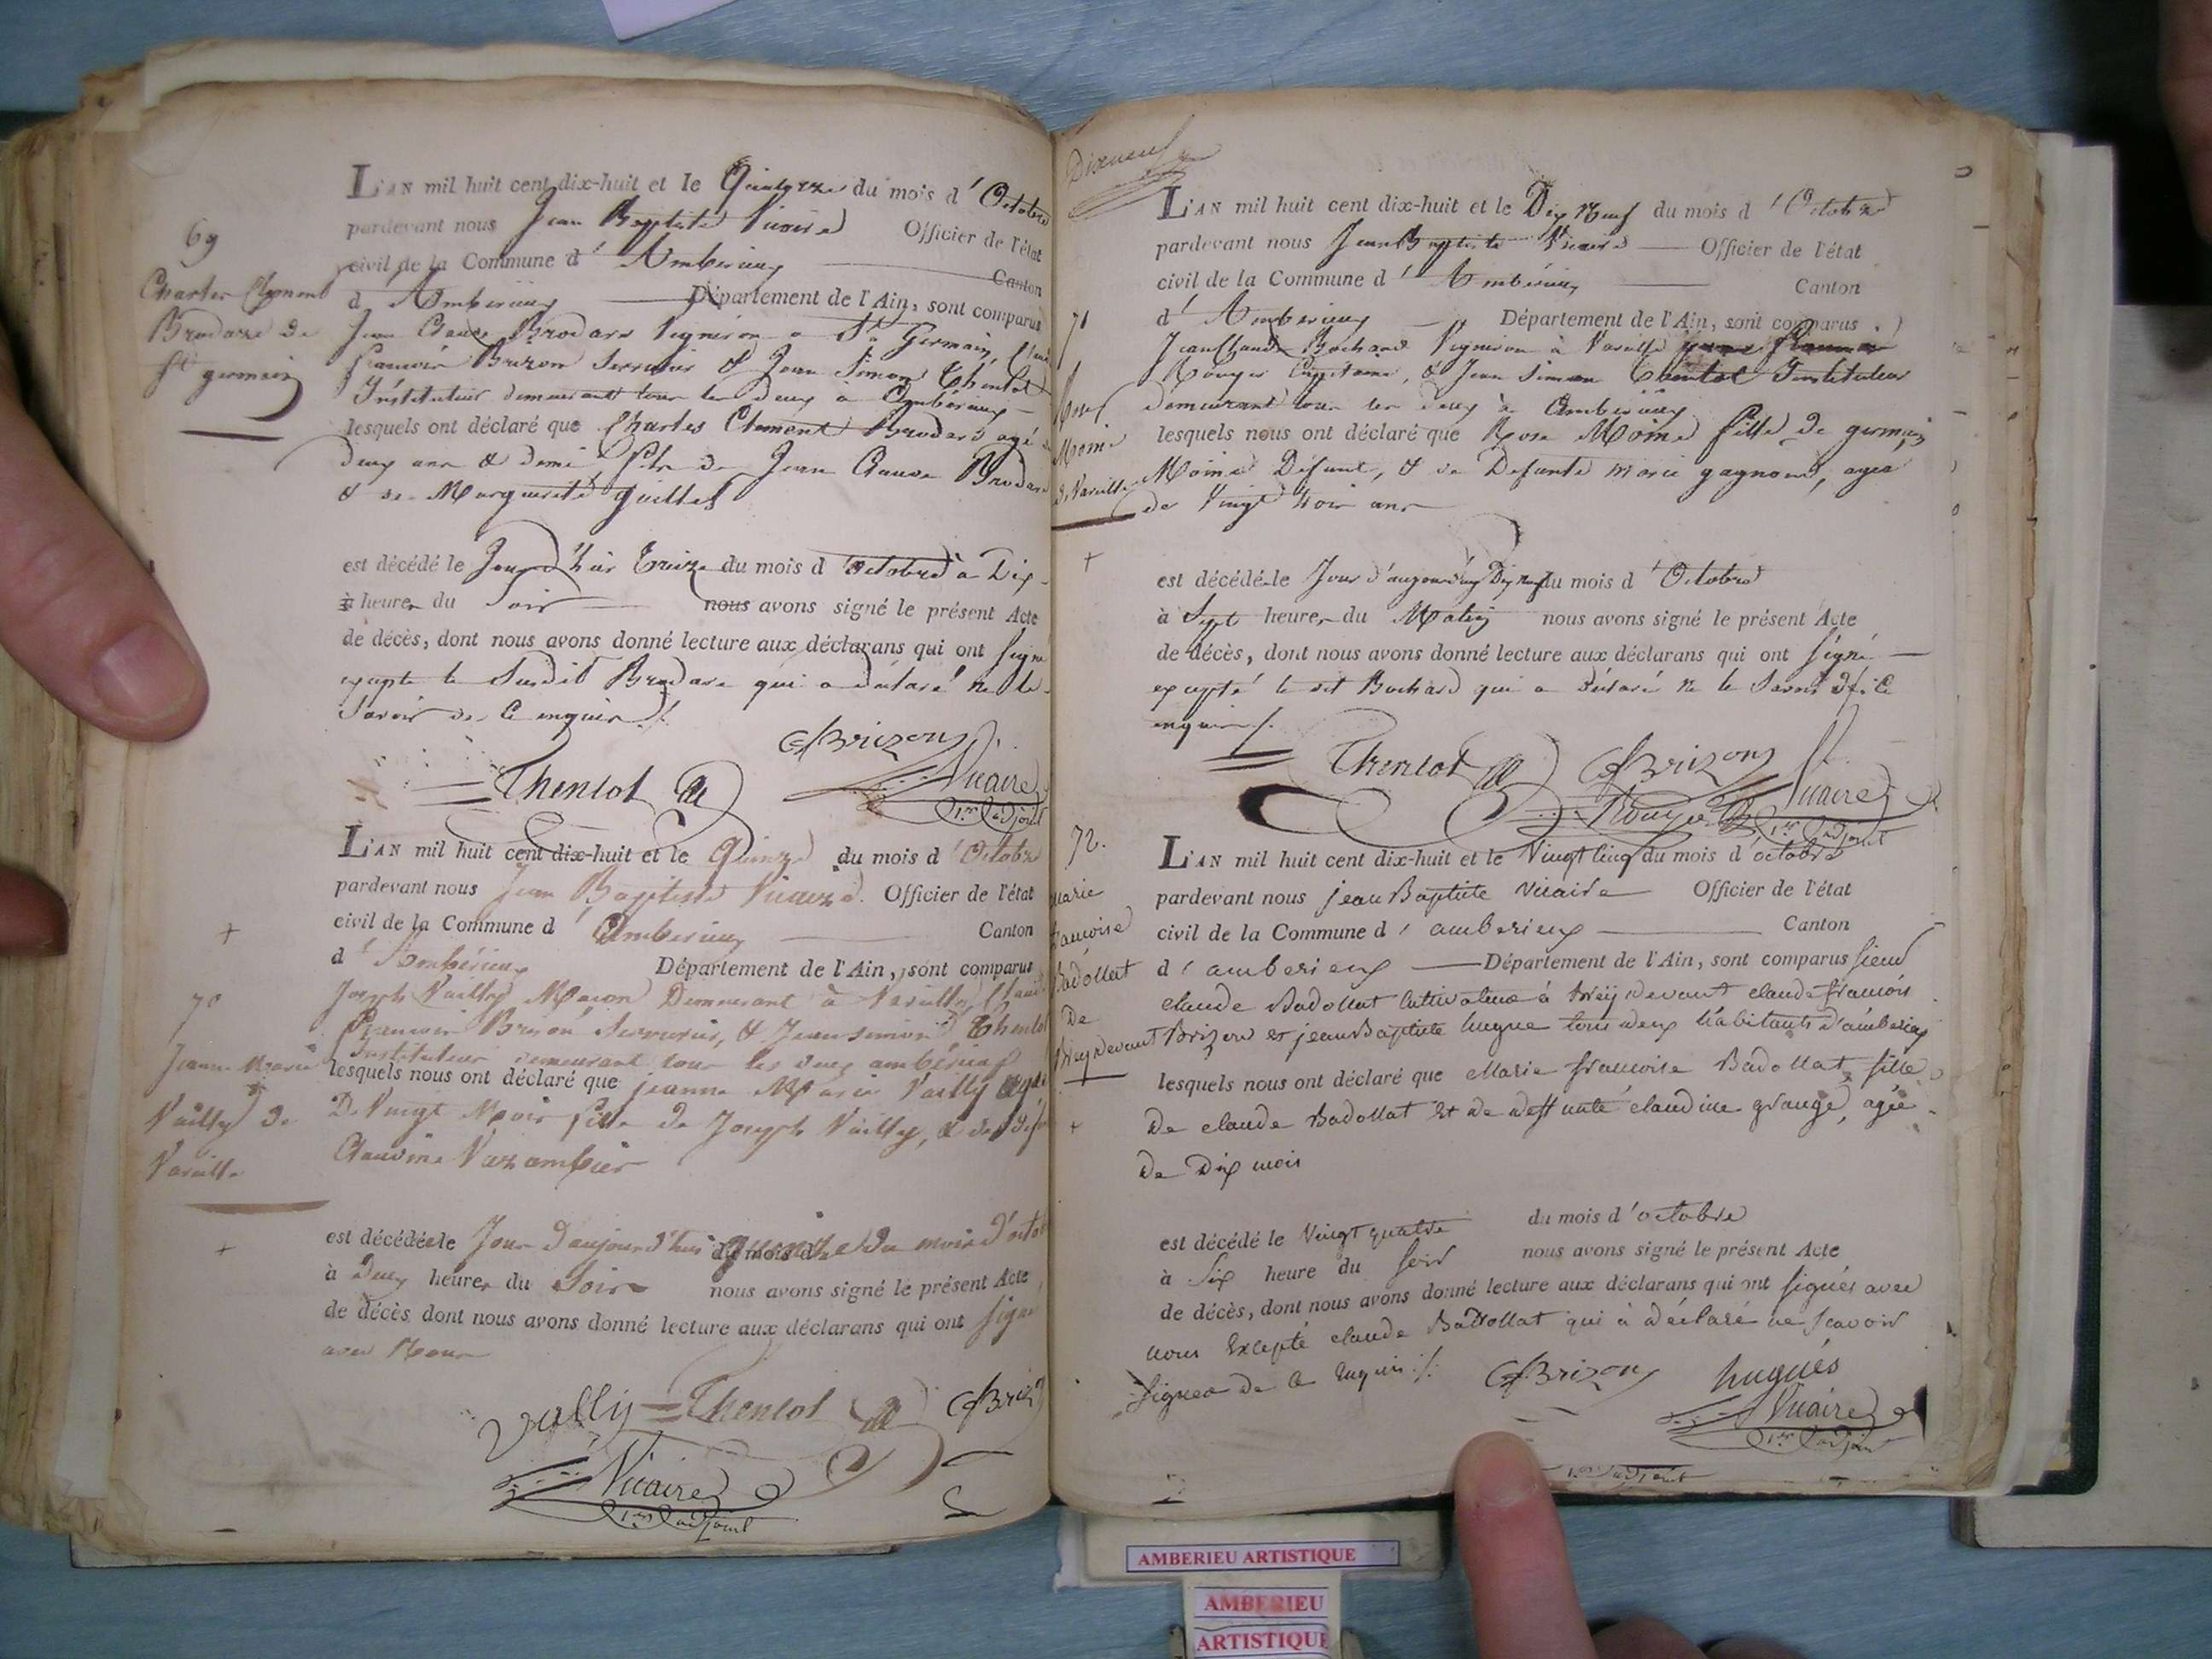 69
Charles Clement
Brodard de
St germain
L'AN mil huit cent dix-huit et le Quatorze du mois d'Octobre
pardevant nous Jean Baptiste Vicaire Officier de l'état
civil de la Commune d'Amberieux Canton
d'Amberieux Département de l'Ain, sont comparus
Jean Claude Brodard Vigneron a St Germain, Claude
francois Brizon Serrurier & Jean Simon Thenlot
Instituteur demeurant tous les deux à Amberieux
lesquels ont déclaré que Charles Clement Brodard agé de
deux ans & demi, fils de Jean Claude Brodard
& de Marguerite Guillet
est décédé le Jour d'hier treize du mois d'Octobre a Dix
à heures du Soir nous avons signé le présent Acte
de décès, dont nous avons donné lecture aux déclarans qui ont signé
excepte le Susdit Brodard qui a déclaré ne le
Savoir de Ce enquis ./.
CfBrizon
Thenlot
Vicaire
1er adjoint
70
Jeanne Marie
Vailly de
Vareille
L'AN mil huit cent dix-huit et le Quinze du mois d'Octobre
pardevant nous Jean Baptiste Vicaire Officier de l'état
civil de la Commune d'Amberieux Canton
d'Ambérieux Département de l'Ain, sont comparus
Joseph Vailly Maçon Demeurant à Vareille, Claude
Francois Brison Serrurier, & Jean simon Thenlot
Instituteur demeurant tous les deux ambérieux
lesquels nous ont déclaré que jeanne Marie Vailly agée
De Vingt Mois fille de Joseph Vailly, & de
Claudine Varambier
est décédée le Jour D'aujourd'hui quinze du mois d'octobre
du mois d
à Deux heures du Soir nous avons signé le présent Acte
de décès dont nous avons donné lecture aux déclarans qui ont signé
avec Nous
Vailly Thenlot CfBrizon
Vicaire
1er adjoint
Dixneuf
71
Rose
Moine
de Vareille
L'AN mil huit cent dix-huit et le Dix Neuf du mois d'Octobre
pardevant nous Jean Baptiste Vicaire Officier de l'état
civil de la Commune d'Ambérieux Canton
d'Amberieux Département de l'Ain, sont comparus
Jean Claude Bochard Vigneron à Vareille
Rouyer Capitaine, & Jean Simon Thenlot Instituteur
demeurant tous les deux à Amberieux
lesquels nous ont déclaré que Rose Moine fille de germain
Moine Défunt, & de Defunte Marie gagnond, agée
de Vingt trois ans
est décédé le Jour d'aujourd'huy Dix neuf du mois d'Octobre
à Sept heures du Matin nous avons signé le présent Acte
de décès, dont nous avons donné lecture aux déclarans qui ont signé
excepté le dit Bochard qui a déclaré ne le Savoir de Ce
enquis ./.
Thenlot CfBrizon
Rouyer Vicaire
1er adjoint
72.
marie
francoise
Badollat
De
breydevant
L'AN mil huit cent dix-huit et le Vingt Cinq du mois d'octobre
pardevant nous jean Baptiste Vicaire Officier de l'état
civil de la Commune d'amberieux Canton
d'amberieux Département de l'Ain, sont comparus sieur
claude Badollat Cultivateur à breydevant claude francois
Brizon et jean Baptiste hugue tous deux habitants d'amberieux
lesquels nous ont déclaré que Marie francoise Badollat fille
De claude Badollat et de deffunte claudine grange, agée
De Dix mois
est décédé le Vingt quatre du mois d'octobre
à Six heure du soir nous avons signé le présent Acte
de décès, dont nous avons donné lecture aux déclarans qui ont signés avec
nous Excepté claude Badollat qui à déclaré ne scavoir
signer de Ce Enquis ./.
CfBrizon hugues
Vicaire
1er adjoint
1er adjoint
AMBERIEU ARTISTIQUE
AMBERIEU
ARTISTIQUE